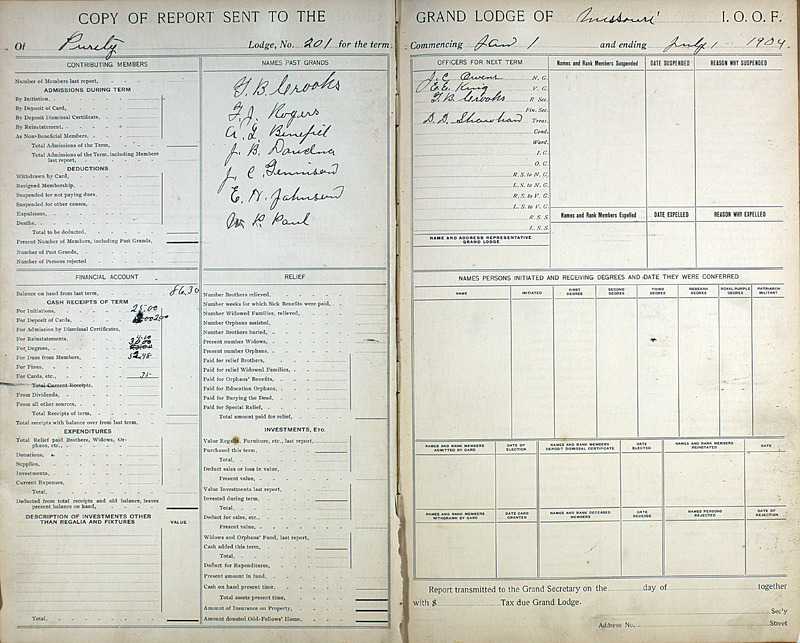 COPY OF REPORT SENT TO THE GRAND LODGE OF Missouri I. O. O. F.
Of Purety Lodge, No. 201 for the term Commencing Jan 1 and ending July 1 1904.
CONTRIBUTING MEMBERS
Number of Members last report,
ADMISSIONS DURING TERM
By Initiation,
By Deposit of Card,
By Deposit Dismissal Certificate,
By Reinstatement,
As Non-Beneficial Members,
Total Admissions of the Term,
Total Admissions of the Term, including Members
last report,
DEDUCTIONS
Withdrawn by Card,
Resigned Membership,
Suspended for not paying dues,
Suspended for other causes,
Expulsions,
Deaths,
Total to be deducted,
Present Number of Members, including Past Grands,
Number of Past Grands,
Number of Persons rejected
NAMES PAST GRANDS
T. B. Crooks
T. J. Rogers
A. G. Benefiel
J. B. Doudna
J. C. Tennison
E. N. Johnson
Wm R. Paul
FINANCIAL ACCOUNT
Balance on hand from last term, 86.30
CASH RECEIPTS OF TERM
For Initiations, 25.00
For Deposit of Cards,
For Admission by Dismissal Certificates,
For Reinstatements,
For Degrees,
For Dues from Members, 52.48
For Fines,
For Cards, etc., 75
Total Current Receipts,
From Dividends,
From all other sources,
Total Receipts of term,
Total receipts with balance over from last term,
EXPENDITURES
Total Relief paid Brothers, Widows, Or-
phans, etc.,
Donations,
Supplies,
Investments,
Current Expenses,
Total,
Deducted from total receipts and old balance, leaves
present balance on hand,
DESCRIPTION OF INVESTMENTS OTHER
THAN REGALIA AND FIXTURES
VALUE
Total,
RELIEF
Number Brothers relieved,
Number weeks for which Sick Benefits were paid,
Number Widowed Families, relieved,
Number Orphans assisted,
Number Brothers buried,
Present number Widows,
Present number Orphans,
Paid for relief Brothers,
Paid for relief Widowed Families,
Paid for Orphans' Benefits,
Paid for Education Orphans,
Paid for Burying the Dead,
Paid for Special Relief,
Total amount paid for relief,
INVESTMENTS, ETC.
Value Regalia, Furniture, etc., last report,
Purchased this term,
Total,
Deduct sales or loss in value,
Present value,
Value Investments last report,
Invested during term,
Total,
Deduct for sales, etc.,
Present value,
Widows and Orphans' Fund, last report,
Cash added this term,
Total,
Deduct for Expenditures,
Present amount in fund,
Cash on hand present time,
Total assets present time,
Amount of Insurance on Property,
Amount donated Odd-Fellows' Home,
OFFICERS FOR NEXT TERM
J. C. Owens N. G.
E. E. King V. G.
T. B. Crooks R. Sec.
Fin. Sec.
D. D. Shawhan Treas.
Cond.
Ward.
I. G.
O. G.
R. S. to N. G.
L. S. to N. G.
R. S. to V. G.
L. S. to V. G.
R. S. S.
L. S. S.
NAME AND ADDRESS REPRESENTATIVE
GRAND LODGE
Names and Rank Members Suspended
DATE SUSPENDED
REASON WHY SUSPENDED
Names and Rank Members Expelled
DATE EXPELLED
REASON WHY EXPELLED
NAMES PERSONS INITIATED AND RECEIVING DEGREES AND DATE THEY WERE CONFERRED
NAME
INITIATED
FIRST DEGREE
SECOND DEGREE
THIRD DEGREE
REBEKAH DEGREE
ROYAL PURPLE DEGREE
PATRIARCH MILITANT
NAMES AND RANK MEMBERS ADMITTED BY CARD
DATE OF ELECTION
NAMES AND RANK MEMBERS DEPOSIT DISMISSAL CERTIFICATE
DATE ELECTED
NAMES AND RANK MEMBERS REINSTATED
DATE
NAMES AND RANK MEMBERS WITHDRAWN BY CARD
DATE CARD GRANTED
NAMES AND RANK DECEASED MEMBERS
DATE DECEASE
NAMES PERSONS REJECTED
DATE OF REJECTION
Report transmitted to the Grand Secretary on the day of together
with $ Tax due Grand Lodge.
Sec'y
Address No. Street